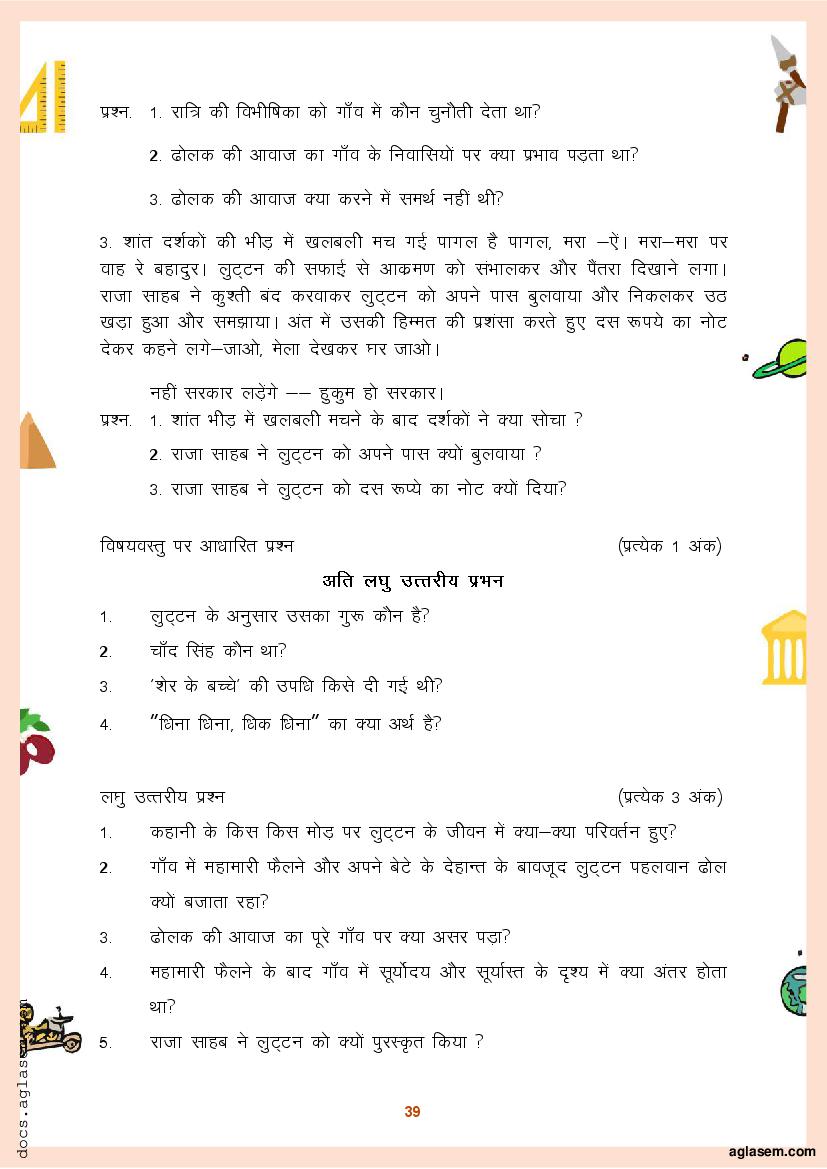 प्रश्न. 1. रात्रि की विभीषिका को गाँव में कौन चुनौती देता था?
2. ढोलक की आवाज का गाँव के निवासियों पर क्या प्रभाव पड़ता था?
3. ढोलक की आवाज क्या करने में समर्थ नहीं थी?
3. शांत दर्शकों की भीड़ में खलबली मच गई पागल है पागल, मरा –ऐं। मरा–मरा पर
वाह रे बहादुर। लुट्टन की सफाई से आक्रमण को संभालकर और पैंतरा दिखाने लगा।
राजा साहब ने कुश्ती बंद करवाकर लुट्टन को अपने पास बुलवाया और निकलकर उठ
खड़ा हुआ और समझाया। अंत में उसकी हिम्मत की प्रशंसा करते हुए दस रूपये का नोट
देकर कहने लगे–जाओ, मेला देखकर घर जाओ।
नहीं सरकार लड़ेंगे –– हुकुम हो सरकार।
प्रश्न. 1. शांत भीड़ में खलबली मचने के बाद दर्शकों ने क्या सोचा ?
2. राजा साहब ने लुट्टन को अपने पास क्यों बुलवाया ?
3. राजा साहब ने लुट्टन को दस रूप्ये का नोट क्यों दिया?
विषयवस्तु पर आधारित प्रश्न (प्रत्येक 1 अंक)
अति लघु उत्तरीय प्रभन
1. लुट्टन के अनुसार उसका गुरू कौन है?
2. चाँद सिंह कौन था?
3. 'शेर के बच्चे' की उपधि किसे दी गई थी?
4. "धिना धिना, धिक धिना" का क्या अर्थ है?
लघु उत्तरीय प्रश्न (प्रत्येक 3 अंक)
1. कहानी के किस किस मोड़ पर लुट्टन के जीवन में क्या–क्या परिवर्तन हुए?
2. गाँव में महामारी फैलने और अपने बेटे के देहान्त के बावजूद लुट्टन पहलवान ढोल
क्यों बजाता रहा?
3. ढोलक की आवाज का पूरे गाँव पर क्या असर पड़ा?
4. महामारी फैलने के बाद गाँव में सूर्योदय और सूर्यास्त के दृश्य में क्या अंतर होता
था?
5. राजा साहब ने लुट्टन को क्यों पुरस्कृत किया ?
39
docs.aglasem.com
aglasem.com